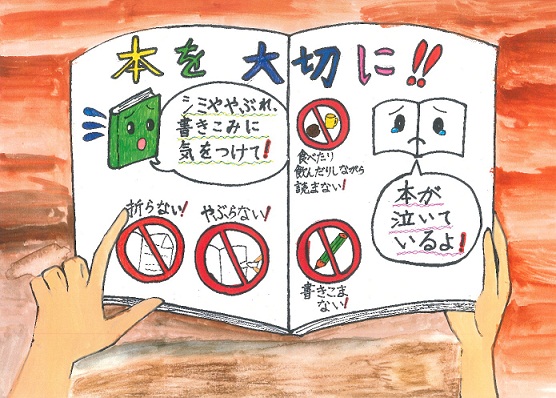 本を大切に!!
シミややぶれ、
書きこみに
気をつけて!
折らない!
やぶらない!
食べたり
飲んだりしながら
読まない!
本が
泣いて
いるよ!
書きこま
ない!